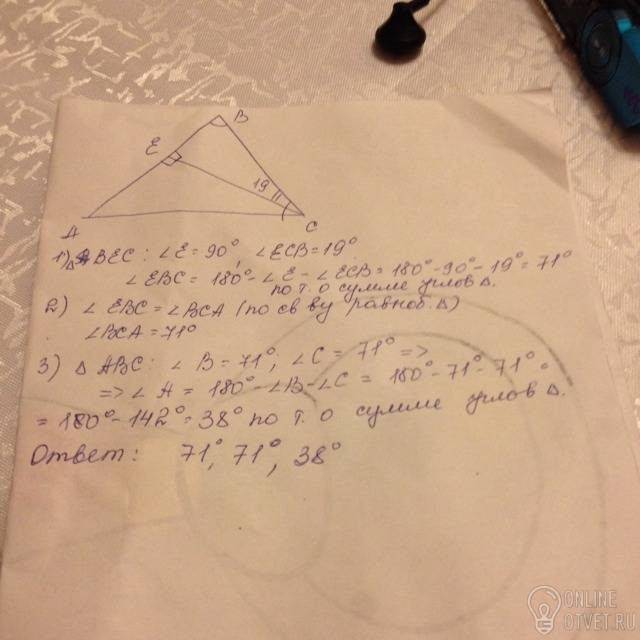 B
E
19
A
C
1) △ BEC: ∠E = 90°, ∠ECB = 19°
∠EBC = 180° - ∠E - ∠ECB = 180° - 90° - 19° = 71°
по т. о сумме углов △.
2) ∠EBC = ∠BCA (по св ву равноб. △)
∠BCA = 71°
3) △ ABC: ∠B = 71°, ∠C = 71° =>
=> ∠A = 180° - ∠B - ∠C = 180° - 71° - 71° =
= 180° - 142° = 38° по т. о сумме углов △.
Ответ: 71°, 71°, 38°
ONLINE
OTVET.RU